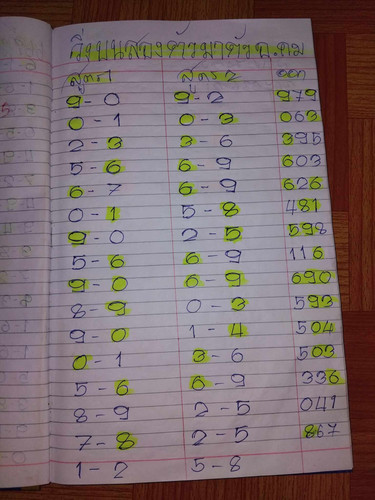 วิ่งบนสองตัวมาตัว ฤ.คม
สูตร1 สูตร2 ออก
9-0 9-2 979
0-1 0-3 063
2-3 3-6 395
5-6 6-9 603
6-7 6-9 626
0-1 5-8 481
9-0 2-5 598
5-6 6-9 116
9-0 6-9 690
8-9 0-3 593
9-0 1-4 504
0-1 3-6 503
5-6 6-9 336
8-9 2-5 041
7-8 2-5 867
1-2 5-8